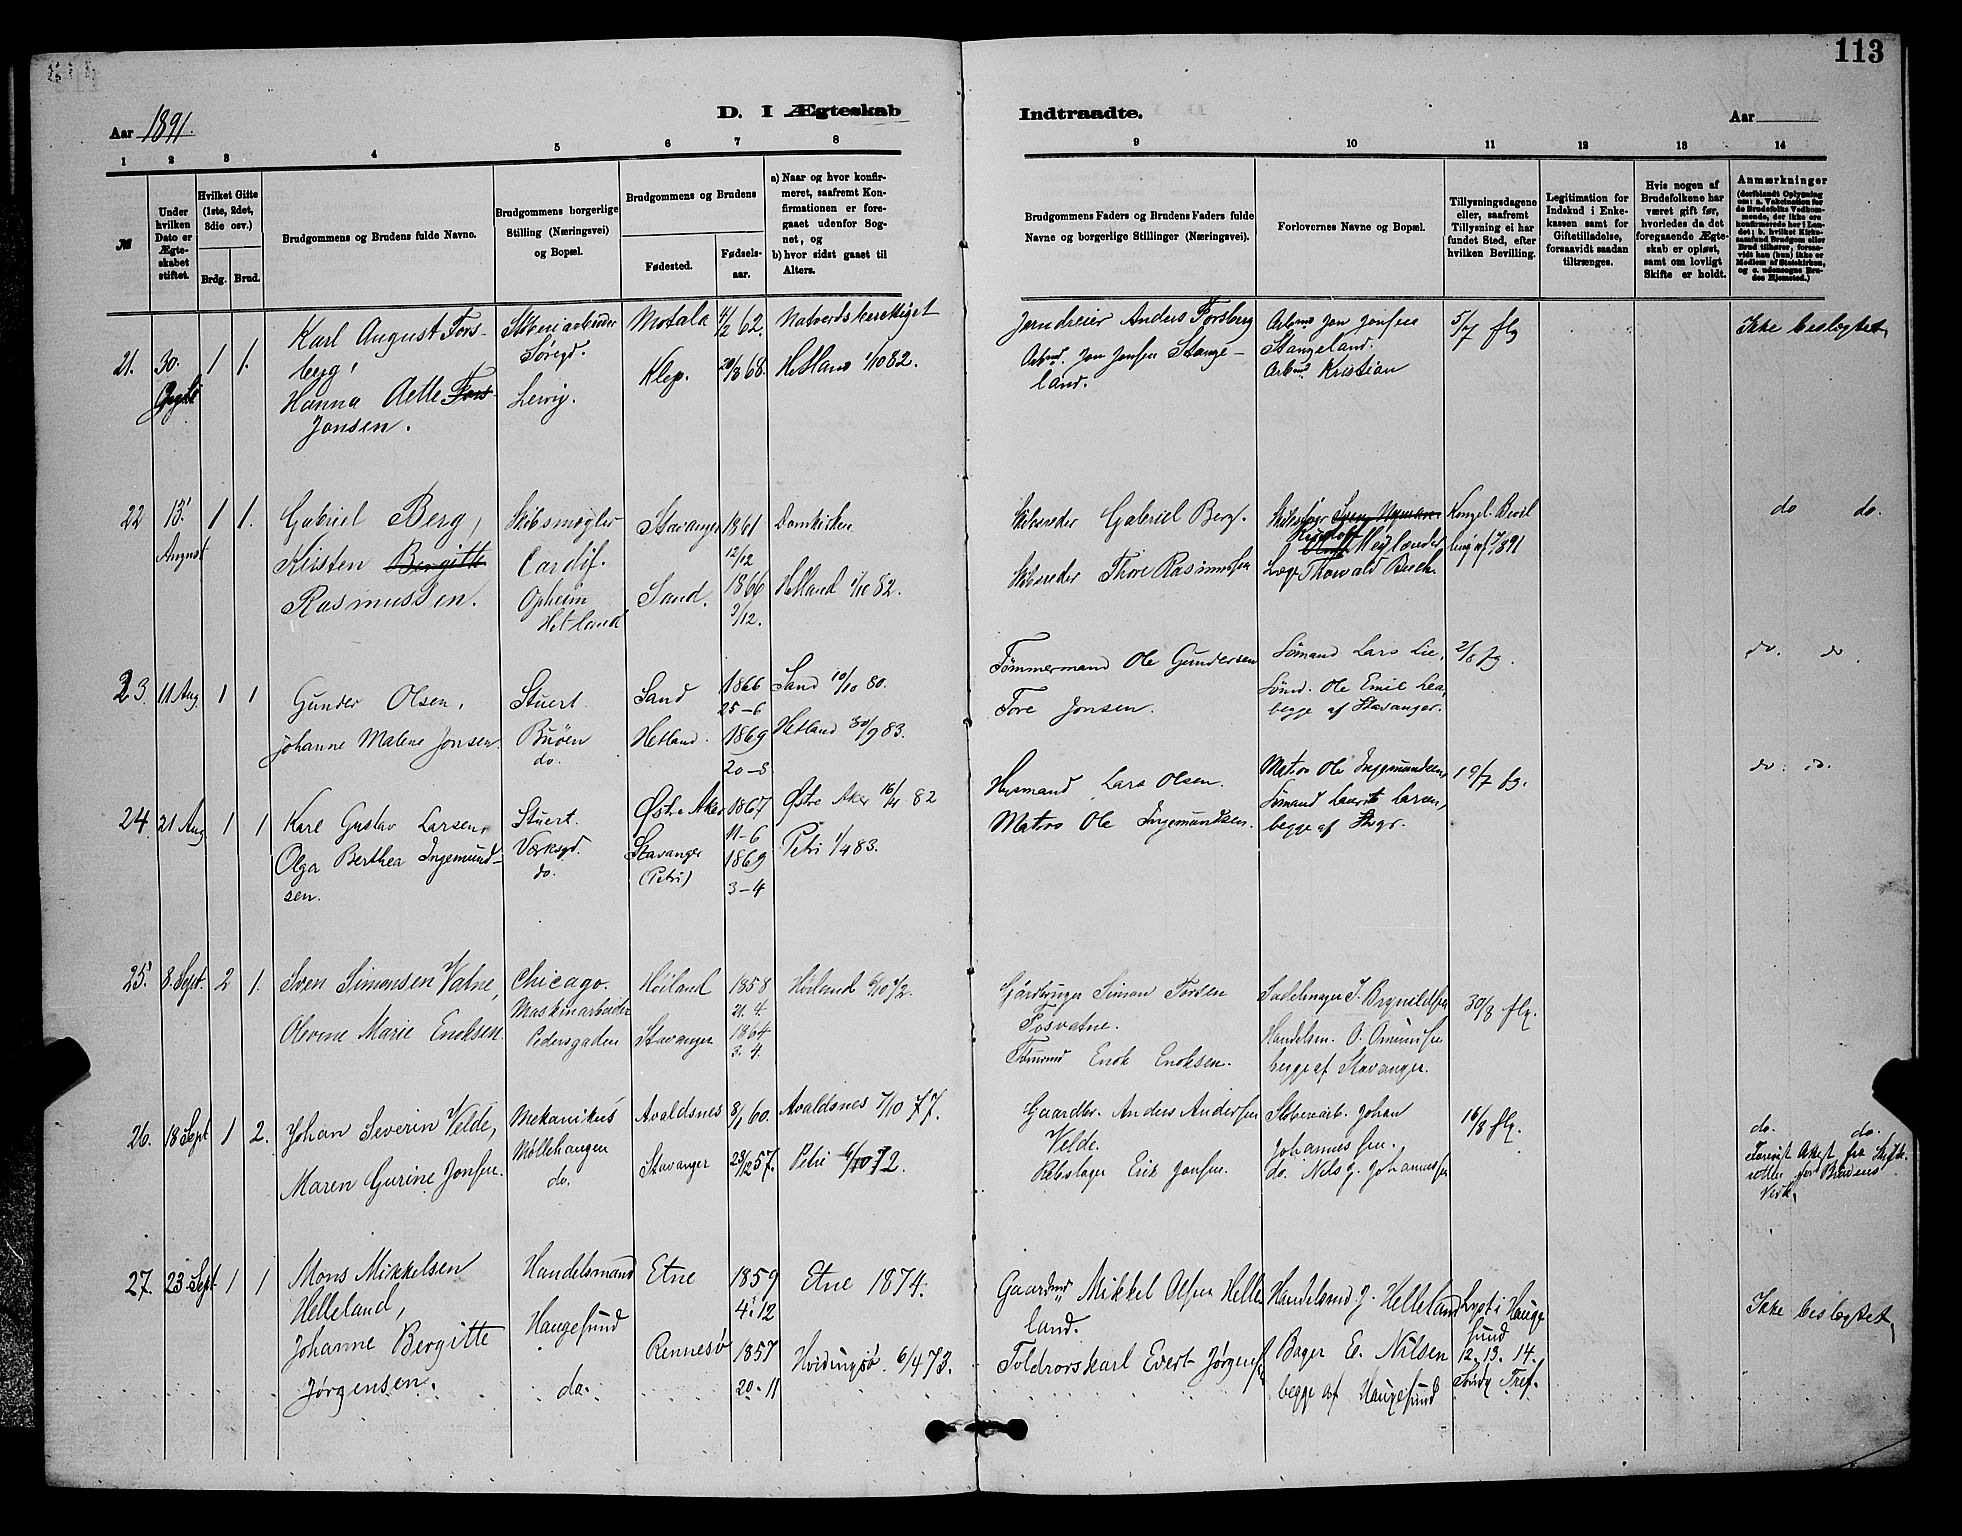 113
D. I Ægteskab
Indtraadte.
Aar 1891.
Aar
1 2 3 4 5 6 7 8
9 10 11 12 13 14
№
Under hvilken Dato er Ægteskabet stiftet.
Hvilket Gifte (1ste, 2det, 3die osv.)
Brdg. Brud.
Brudgommens og Brudens fulde Navne.
Brudgommens borgerlige Stilling (Næringsvei) og Bopæl.
Brudgommens og Brudens
Fødested.
Fødselsaar.
a) Naar og hvor konfirmeret, saafremt Konfirmationen er foregaaet udenfor Sognet, og
b) hvor sidst gaaet til Alters.
Brudgommens Faders og Brudens Faders fulde Navne og borgerlige Stillinger (Næringsvei).
Forlovernes Navne og Bopæl.
Tillysningsdagene eller, saafremt Tillysning ei har fundet Sted, efter hvilken Bevilling.
Legitimation for Indskud i Enkekassen samt for Giftetilladelse, forsaavidt saadan tiltrænges.
Hvis nogen af Brudefolkene har været gift før, hvorledes da det foregaaende Ægteskab er opløst, samt om lovligt Skifte er holdt.
Anmærkninger
(deriblandt Oplysning om: a. Vakcination for de Brudefolks Vedkommende, der ikke ere konfirmerede her i Landet; b. hvilket Kirkesamfund Brudgom eller Brud tilhører, forsaavidt han (hun) ikke er Medlem af Statskirken, og c. udensogns Brudens Hjemsted.)
21. 30. 1 1.
Karl August Forsberg,
Hanna Aette Fors-
Jonsen.
Støberiarbeider
Lervig.
Motala 4/2 62.
Klep. 20/8 68.
Natverdsberettiget
Hetland 1/10 82.
Jerndreier Anders Forsberg
Arbmd. Jon Jonsen Stangeland.
Arbmd Jon Jonsen
Stangeland.
Arbmd Kristian
5/7 flg
Ikke beslegtet
22 13' August 1 1.
Gabriel Berg,
Kristen Bergitte
Rasmussen.
Skibsmægler
Cardif.
Opheim
Hetland
Stavanger 1861
12/12
Sand. 1866
3/12.
Domkirken
Hetland 1/10 82.
Skibsreder Gabriel Berg.
Skibsreder Thore Rasmussen
Thorvald Bech.
Kongel. Bevil
do do.
23. 11 Aug 1 1
Gunder Olsen,
Johanne Malene Jonsen.
Stuert.
Buøen
do.
Sand 1866
25-6
Hetland. 1869
20-8
Sand 10/10 80.
Hetland 30/9 83.
Tømmermand Ole Gundersen
Tore Jonsen.
Sømand Lars Lie,
Sømd. Ole Emil Lea,
begge af Stavanger.
2/8 fg.
do. do.
24. 21 Aug 1 1
Karl Gustav Larsen,
Olga Berthea Ingemundsen.
Stuert.
Værksgd.
do.
Østre Aker 1867
11-6
Stavanger
(Petri) 1869
3-4
Østre Aker 16/4 82
Petri 1/4 83.
Husmand Lars Olsen.
Matros Ole Ingemundsen.
Matros Ole Ingemundsen,
Sømand Laurits Larsen,
begge af Stvgr.
19/7 fg.
do. do.
25. 8. Sept. 2 1.
Sven Simonsen Vatne,
Olevine Marie Enoksen.
Chicago.
Maskinarbeider
Pedersgaden
Høiland 1858
21. 4.
Stavanger 1864
3. 4.
Høiland
Simon Torsen
Fosvatne.
Tømmd Enok Enoksen.
Sadelmager J. Brynildsen
Handelsm. O. Omundsen
begge af Stavanger.
30/8 flg.
26. 18 Sept 1 2.
Johan Severin Velde,
Maren Gurine Jonsen.
Mekanikus
Møllehaugen
do.
Avaldsnes 8/1 60.
Stavanger 28/2 57.
Avaldsnes 7/10 77.
Petri 6/10 72.
Gaardbr. Anders Andersen
Velde.
Rebslager Erik Jonsen.
Støberiarb. Johan
Johannessen.
do. Nils J. Johannessen
16/8 flg.
do. do.
Forevist Attest fra Skifteretten for Brudens Vedk.
27. 23 Sept 1 1
Mons Mikkelsen
Helleland,
Johanne Bergitte
Jørgensen.
Handelsmand
Haugesund
do.
Etne 1859
4. 12
Rennesø 1857
20. 11
Etne 1874.
Hvidingsø. 6/4 73.
Gaardmd Mikkel Olsen Helleland.
Toldrorskarl Evert Jørgensen
Handelsmd J. Helleland
Bager E. Nilsen
begge af Haugesund
Lyst i Haugesund
12. 13. 14.
Sønd. Tref.
Ikke beslegtet